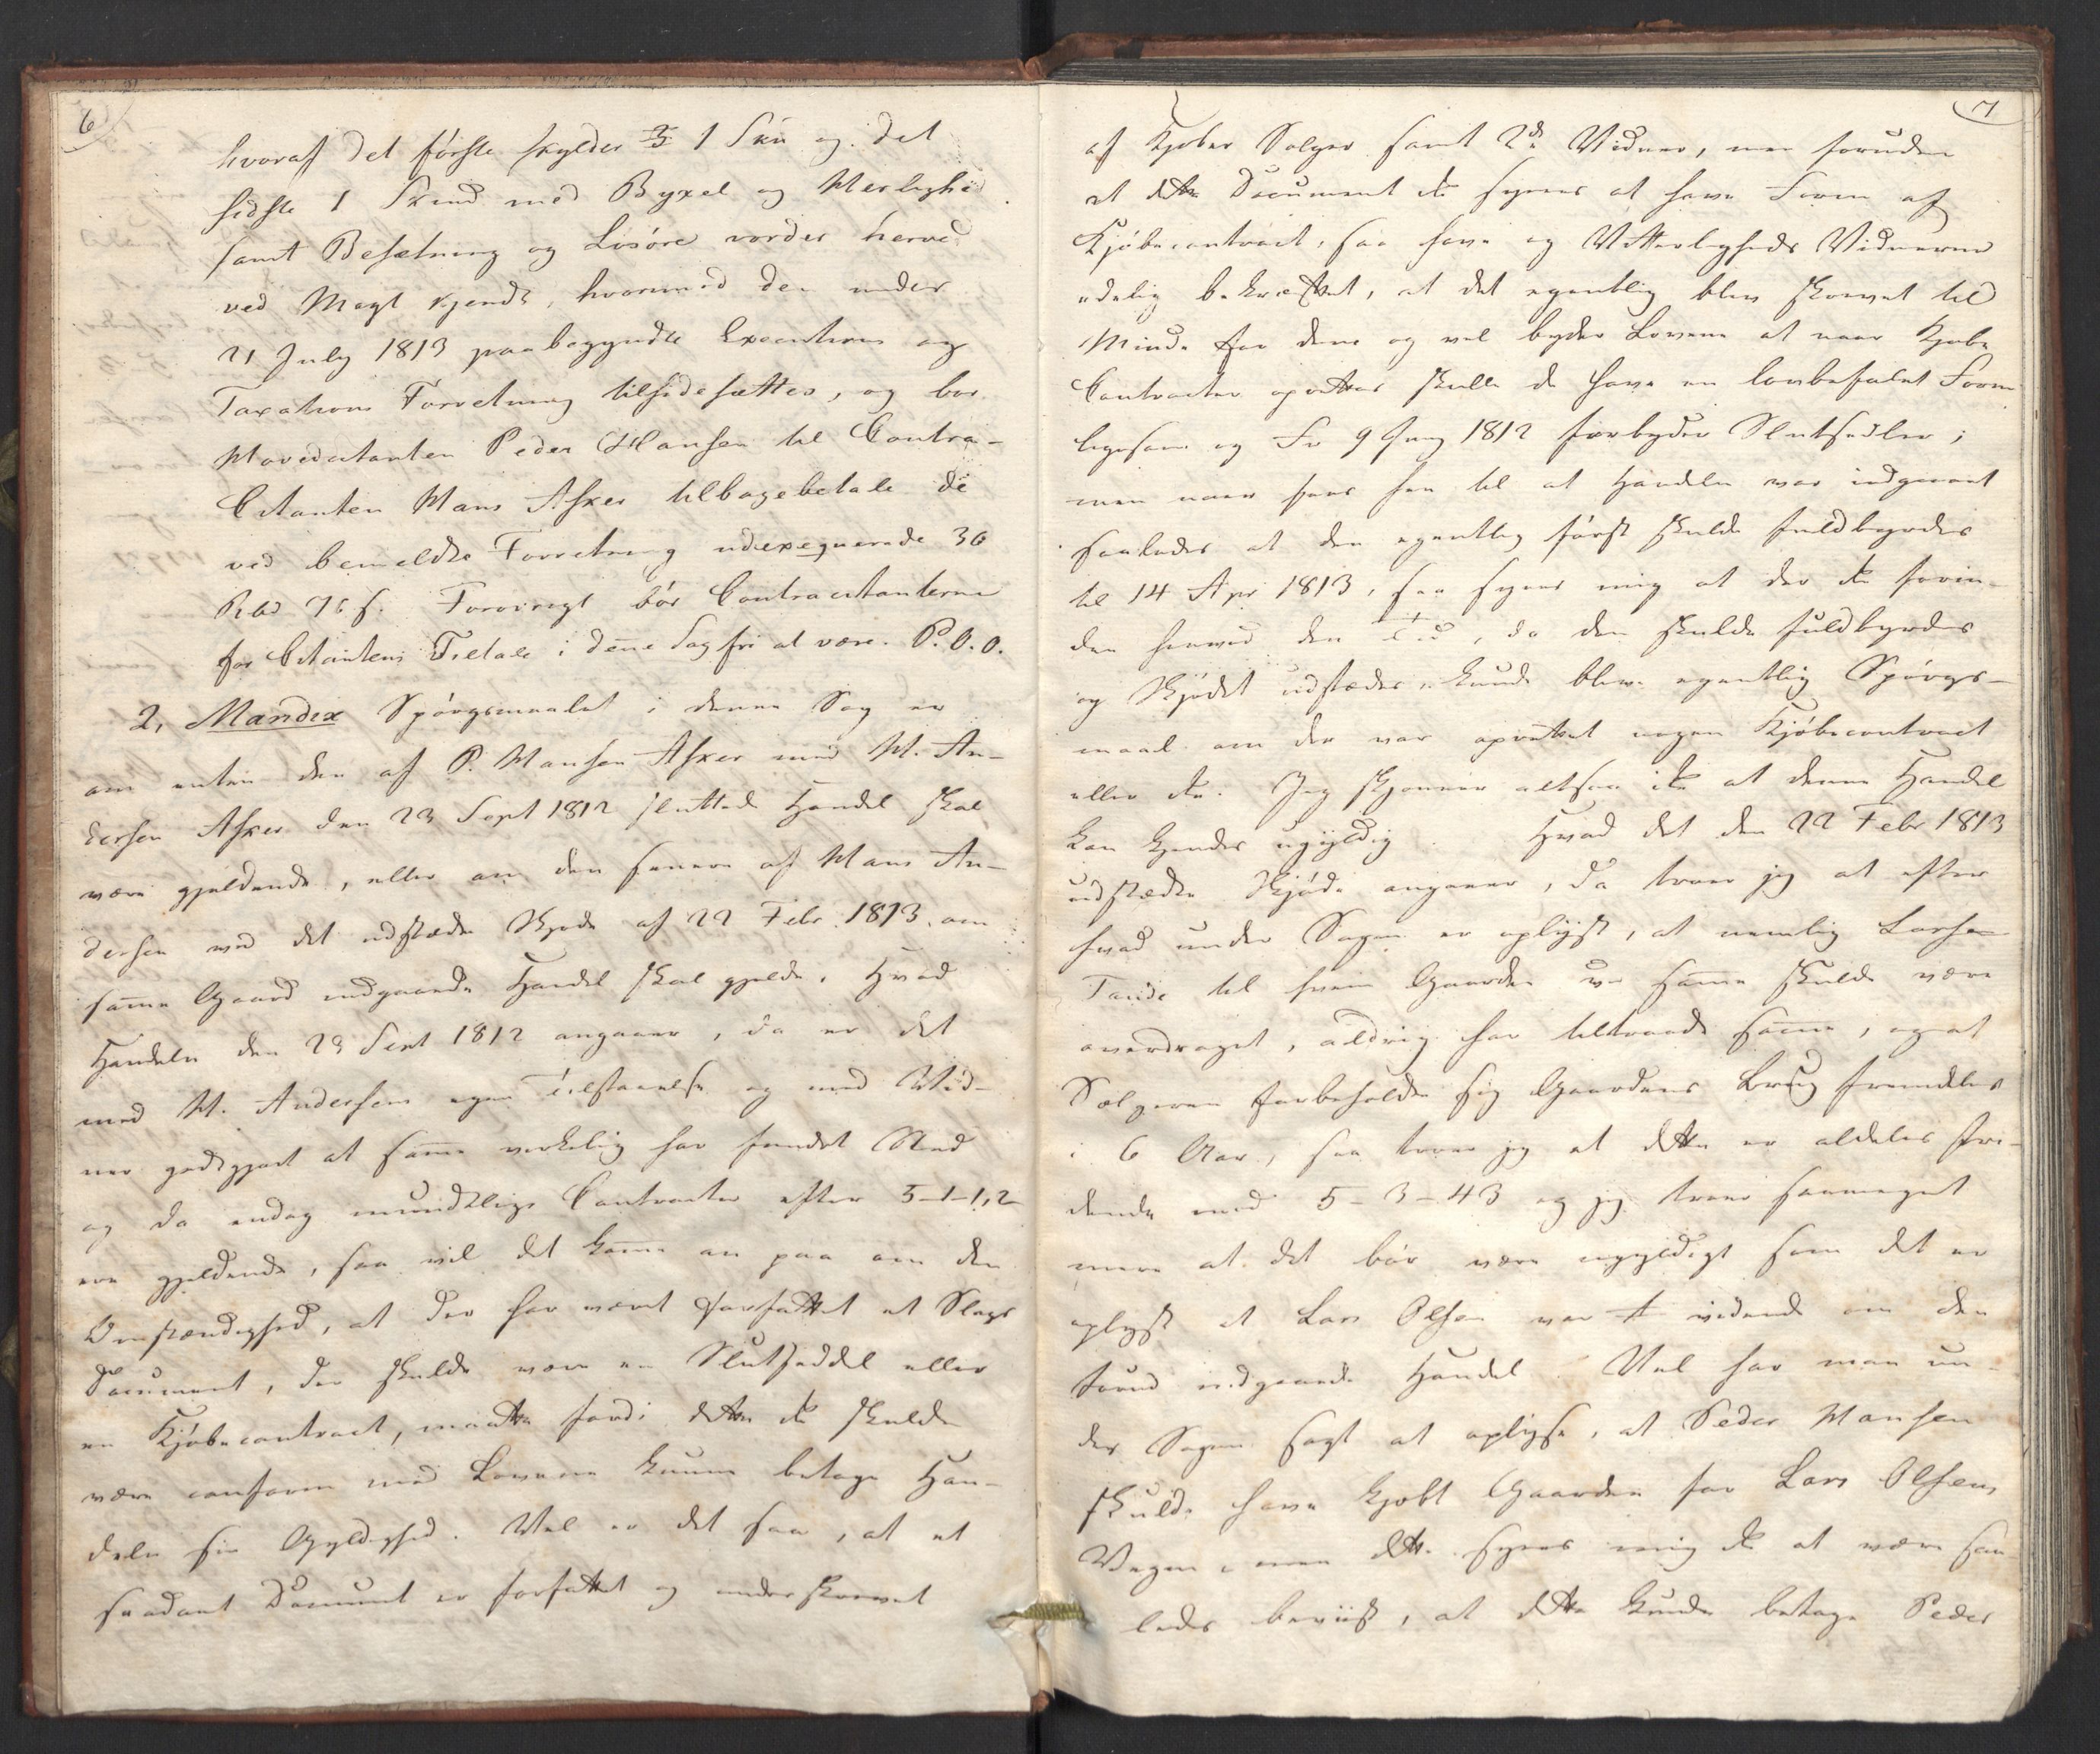 6
hvoraf det første skylder 3/4 1 Skin og det
sidste 1 Skind med Byxel og Herlighed
samt Besætning og Losøre vorder herved
ved Magt kjendt, hvorimod den under
21 July 1813 paabegyndte Executions og
Taxations Forretning tilsidesættes, og bør
Hovedcitanten Peder Hansen til Contra-
Citanten Hans Asker tilbagebetale de
ved bemeldte Forretning udexeqverede 36
Rbd 76 s. Forøvrigt bør Contracitanterne
for Citantens Tiltale i denne Sag fri at være. P.V.O.
2, Mandix Spørgsmaalet i denne Sag er
om enten den af P. Hansen Asker med H. An-
dersen Asker den 23 Sept 1812 sluttede Handel skal
være gjeldende, eller om den senere af Hans An-
dersen ved det udstædte Skjøde af 22 Febr. 1813 om
samme Gaard indgaaede Handel skal gjelde. Hvad
Handelen den 23 Sept 1812 angaaer, da er det
med H. Andersens egen Tilstaaelse og med Vid-
ner godtgjort at samme verkelig har fundet Sted
og da endog mundtlige Contracter efter 5-1-1,2
ere gjeldende, saa vil det komme an paa om den
Omstændighed, at der har været forfattet et Slags
Document, der skulde være en Slutseddel eller
en Kjøbecontract, maatte fordi dette ei skulde
være conform med Lovene kunne betage Han-
delen sin Gyldighed. Vel er det saa, at et
saadant Document er forfattet og underskrevet
7
af Kjøber Sælger samt 2de Vidner, men foruden
at dette Document ei synes at have Form af
Kjøbecontract, saa have og Vitterligheds Vidnerne
edelig bekræftet, at det egentlig blev skrevet til
Minde for dem og vel byder Lovene at naar Kjøbe
Contracter oprettes skulle de have en lovbefalet Form
ligesom og Fr 9 Juny 1812 forbyder Slutsedler;
men naar sees hen til at Handelen var indgaaet
saaledes at den egentlig først skulde fuldbyrdes
til 14 Apr 1813, saa synes mig at der ei forin-
den henved den Tid, da den skulde fuldbyrdes
og Skjødet udstædes, kunde blive egentlig Spørgs-
maal om der var oprettet nogen Kjøbecontract
eller ei. Jeg skjønner altsaa ei at denne Handel
kan kjendes ugyldig. Hvad det den 22 Febr 1813
udstædte Skjøde angaaer, da troer jeg at efter
hvad under Sagen er oplyst, at nemlig Larsen
til hvem Gaarden ved samme skulde være
overdraget, aldrig har tiltraadt samme, og at
Sælgeren forbeholdte sig Gaardens Brug fremdeles
i 6 Aar, saa troer jeg at dette er aldeles stri-
dende mod 5-3-43 og jeg troer saameget
mere at det bør være ugyldigt som det er
oplyst at Lars Olsen var vidende om den
forud indgaaede Handel. Vel har man un-
der Sagen søgt at oplyse, at Peder Hansen
skulde have kjøbt Gaarden for Lars Olsens
Vegne, men dette synes mig ei at være saa
ledes beviist, at dette kunde betage Peder